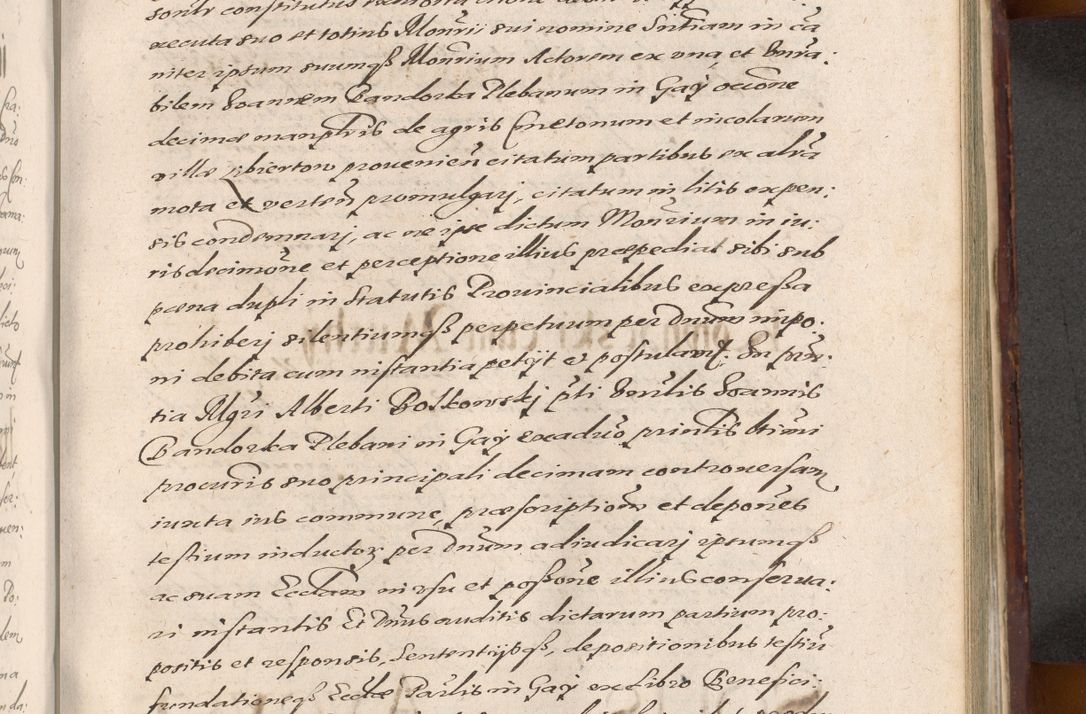 executa suo et totius Monrii sui nomine Sntiam in ca
niter ipsum suumqß Monrium Actorem ex vna et Venra:
bilem Joannem Bandorka Plebanum in Gaÿ occione
decimæ manplris de agris Cmetonum et incolarum
villæ Zbierzow prouenien citatum partibus ex altra
mota et verten promulgarj, citatum in litis expen:
sis condemnarj, ac ne ipse dictum Monrium in iu:
ris decimône et perceptione illius præpediat sibi sub
pœna dupli in Statutis Prouincialibus expreßa
prohiberj silentiumqß perpetuum per Dnum impo:
ni debita cum instantia petijt et postulauit. In prn:
tia Mgri Alberti Bolkowskj pti Venrlis Joannis
Bandorka Plebani in Gaÿ ex aduo printis Ltimi
procuris suo principali decimam controuersam
iuxta ius commune, præscriptiom et depones
testium inductor per Dnum adiudicarj ipsumqß
ac suam Eccliam in vsu et poßone illius conserua:
ri instantis Et Dnus auditis dictarum partium pro:
positis et responsis, Sententijsqß, depositionibus testiu
fundationeqß Ecclæ Parlis in Gaÿ ex Libro Benefici: